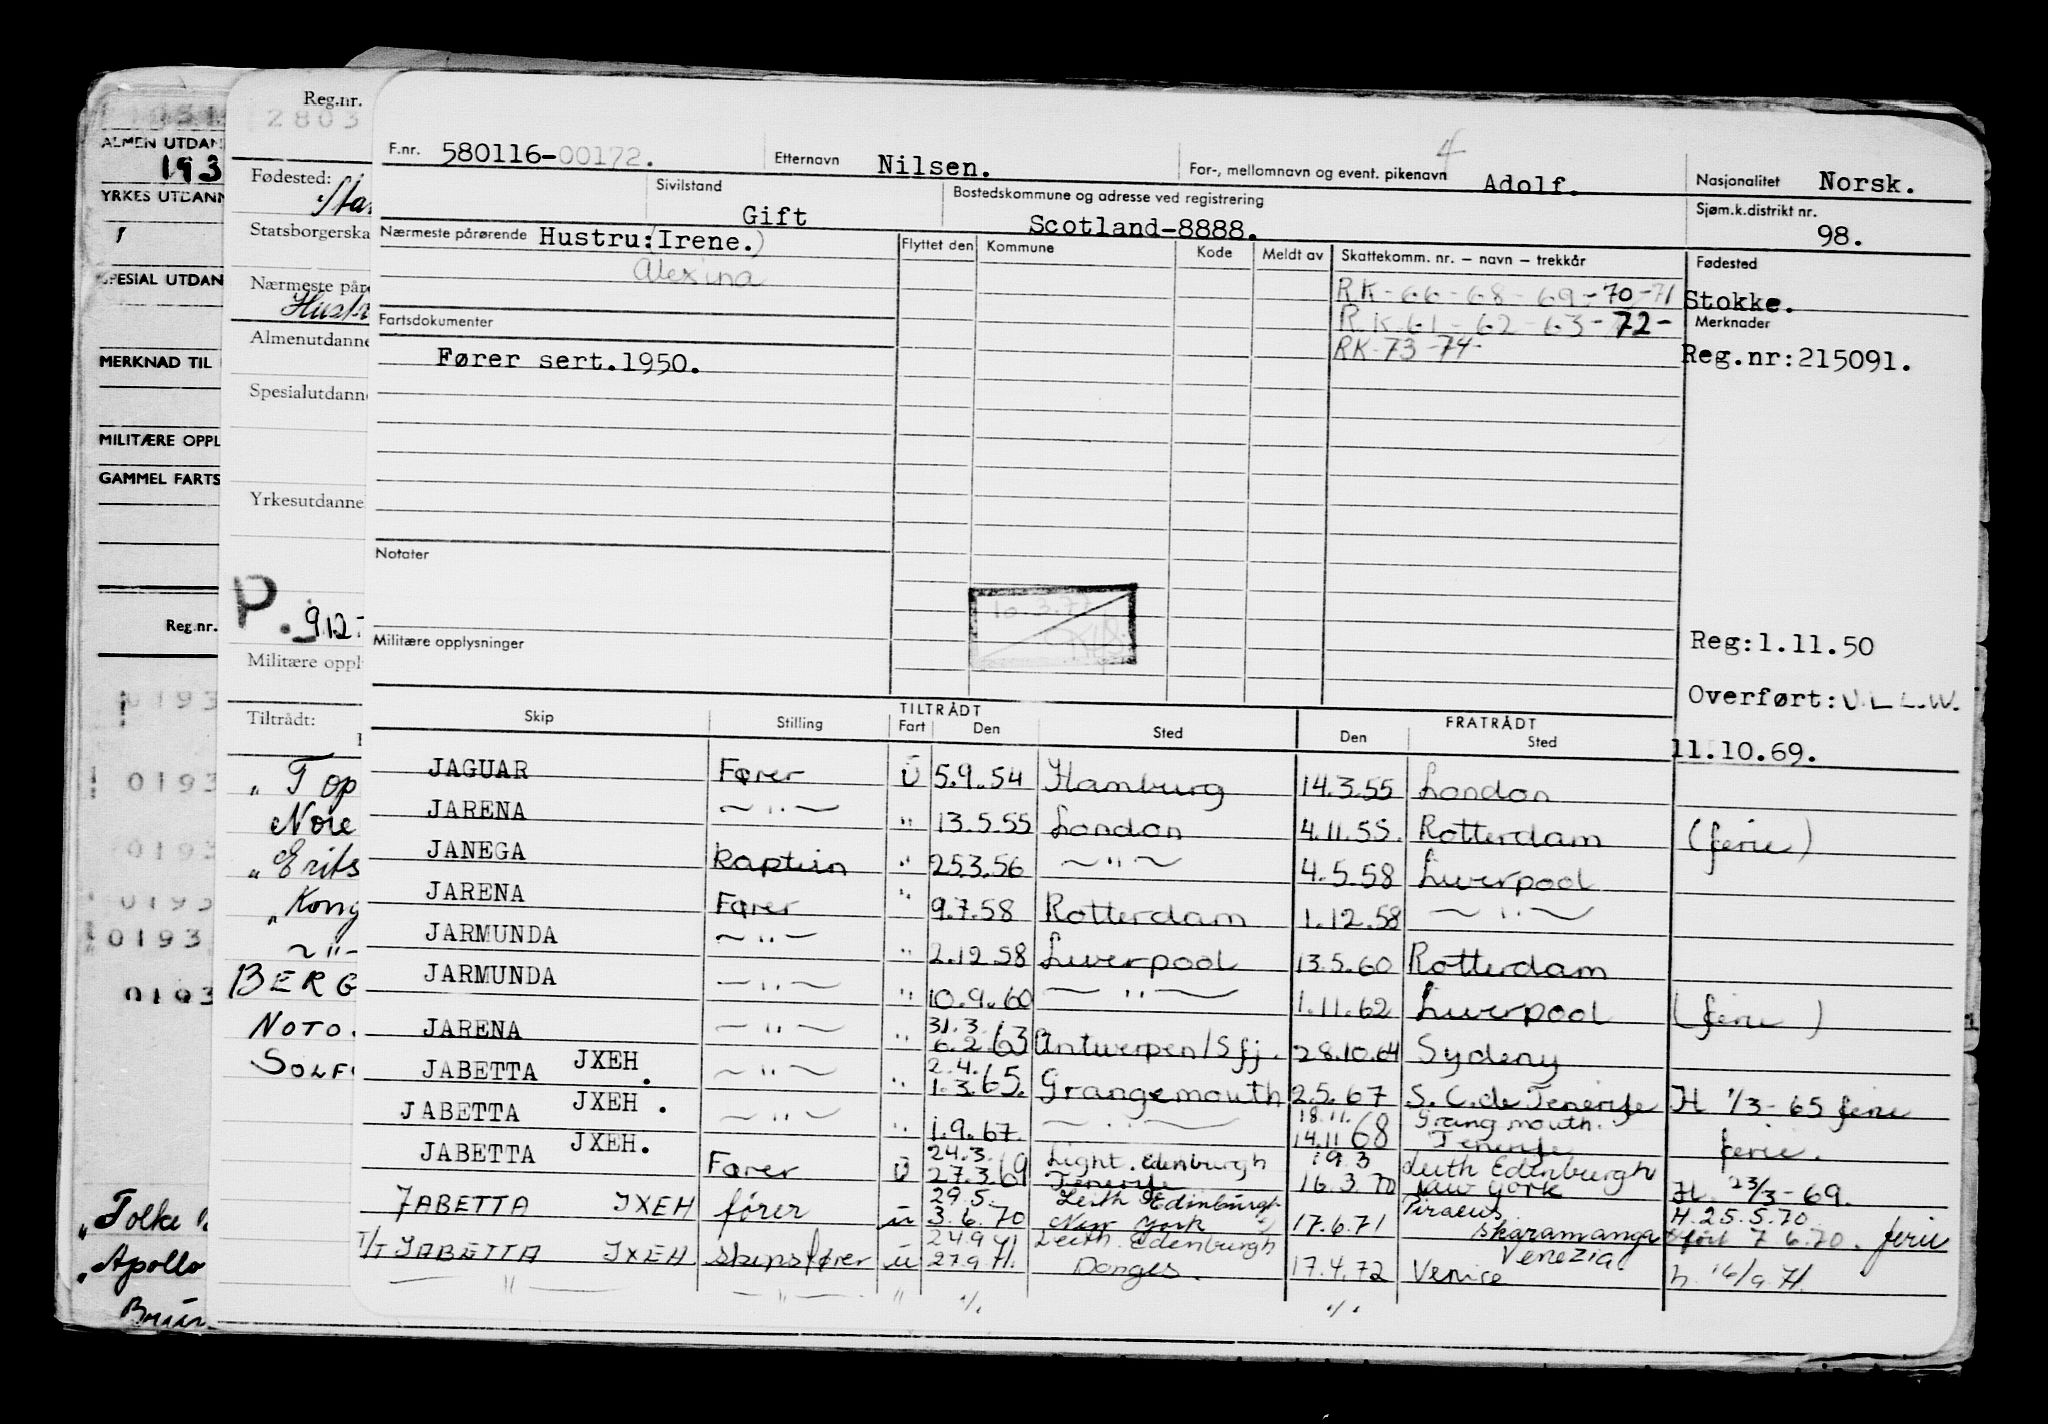 Reg.nr.
2803
ALMEN UTDAN
193
YRKES UTDANN
SPESIAL UTDAN
MERKNAD TIL
MILITÆRE OPPL
GAMMEL FARTS
Reg.nr.
0193
0193
0193
0193
0193
0193
"Tolke
"Apollo
Fødested:
Statsborgerska
Nærmeste påre
Hustr
Almenutdanne
Spesialutdanne
Yrkesutdannel
P. 912
Militære oppl
Tiltrådt:
" Top
Nore
"Erits
"Kong
~"-
BERG
NOTO.
SOLF
F.nr. 580116-00172. Etternavn Nilsen. For-, mellomnavn og event. pikenavn Adolf. Nasjonalitet Norsk.
4
Sivilstand Gift Bostedskommune og adresse ved registrering Scotland-8888. Sjøm.k.distrikt nr. 98.
Nærmeste pårørende Hustru:(Irene.) Flyttet den Kommune Kode Meldt av Skattekomm. nr. – navn – trekkår Fødested
Alexina RK-66-68-69-70-71 Stokke.
Fartsdokumenter R.K.61-62-63-72- Merknader
Fører sert.1950. RK-73-74- Reg.nr:215091.
Notater
10.3.77
Militære opplysninger Reg:1.11.50
Overført: U.L L.W.
11.10.69.
Skip Stilling TILTRÅDT Fart Den Sted FRATRÅDT Den Sted
JAGUAR Fører ü 5.9.54 Hamburg 14.3.55 London
JARENA ~"~ " 13.5.55 London 4.11.55. Rotterdam (ferie)
JANEGA kaptein " 253.56 ~"~ 4.5.58 Liverpool
JARENA Fører " 9.7.58 Rotterdam 1.12.58 ~"~
JARMUNDA ~"~ " 2.12 58 Liverpool 13.5.60 Rotterdam
JARMUNDA ~"~ " 10.9.60 ~"~ 1.11.62 Liverpool (ferie)
JARENA ~"~ " 31.3. 6.2 63 Antwerpen/Sfj. 28.10.64 Sydeny
JABETTA JXEH. ~"~ " 2.4. 1.3.65. Grangemouth 2.5.67 S.C.de Tenerife H 1/3-65 ferie
JABETTA JXEH. ~"~ " 1.9.67. ~"~ 18.11. 14.11 68 Grang mouth. Tenerife ferie.
JABETTA JXEH. Fører ü 24.3. 27.3 69 Light. Edenburgh Tenerife 19.3 16.3.70 Leith Edinburgh New York H. 23/3-69.
JABETTA JXEH fører ü 29.5. 3.6.70 Leith Edinburgh New York 17.6.71 Piraeus Skaramanga H.25.5.70 7 6.70. ferie
T/T JABETTA JXEH skipsfører ü 24.9 27.9 71. Leith. Edenburgh Donges. 17.4.72 Venezia Venice h. 16/9.71.
— " — — " — " ./. ./.